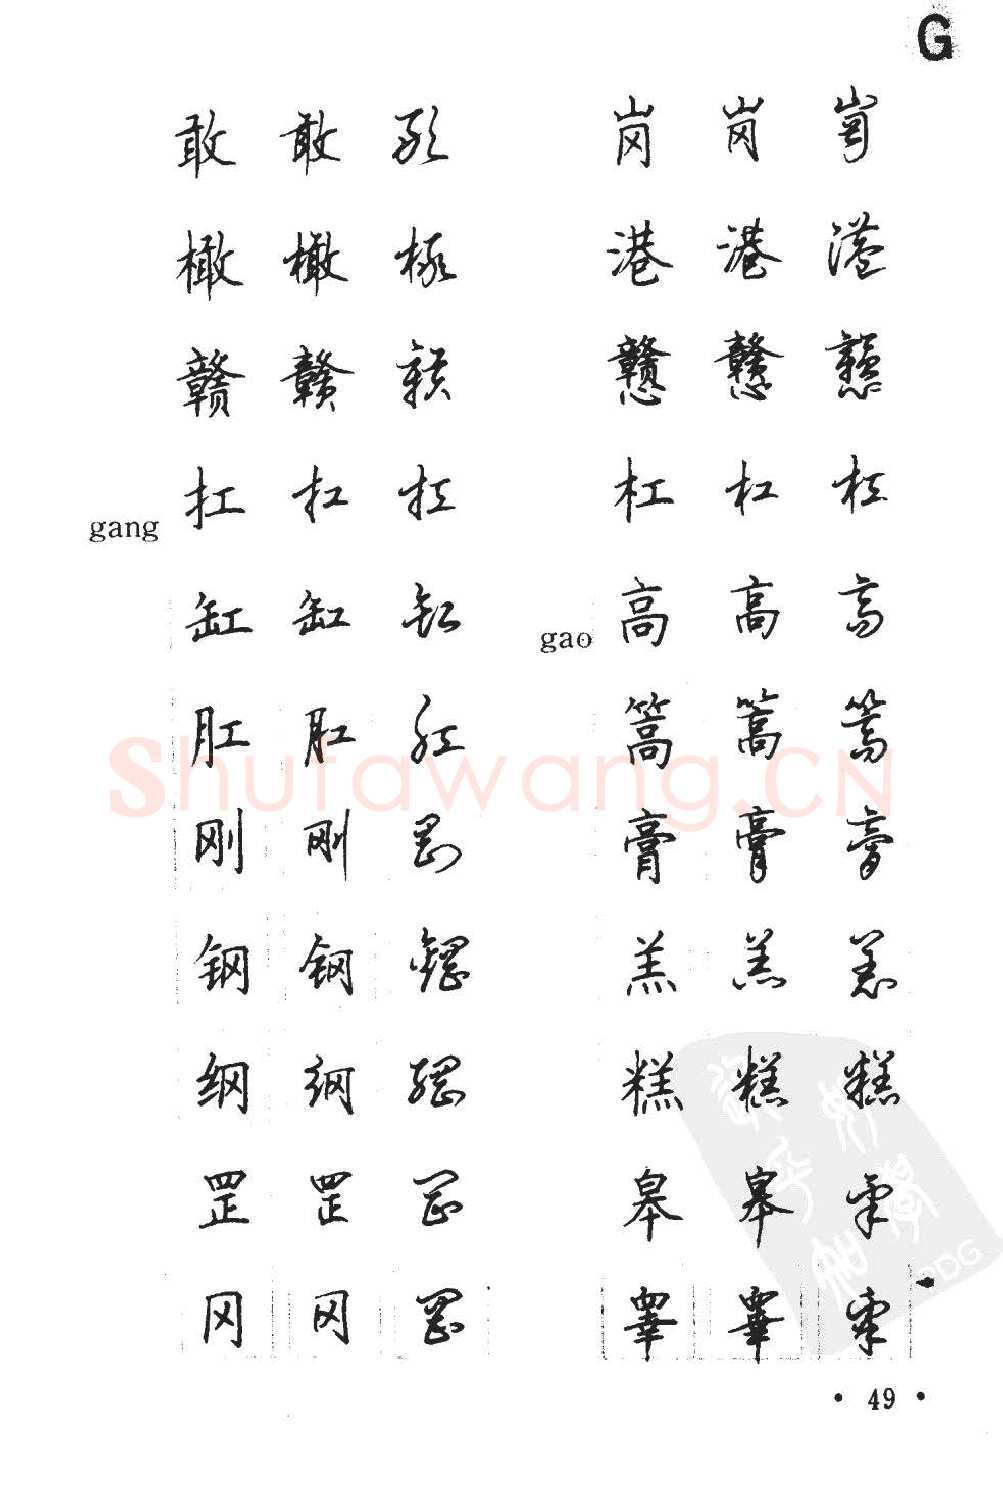 G
敢 敢 敢
橄 橄 橄
赣 赣 赣
gang
扛 扛 扛
缸 缸 缸
肛 肛 肛
刚 刚 刚
钢 钢 钢
纲 纲 纲
罡 罡 罡
冈 冈 冈
岗 岗 岗
港 港 港
戆 戆 戆
杠 杠 杠
gao
高 高 高
篙 篙 篙
膏 膏 膏
羔 羔 羔
糕 糕 糕
皋 皋 皋
睾 睾 睾
Shufawang.CN
PDG
• 49 •